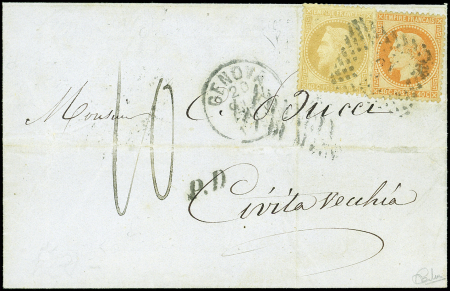 EMPIRE FRANÇAIS
GENOVA
20
Monsieur C. Bucci
10
P.D
Civita Vecchia